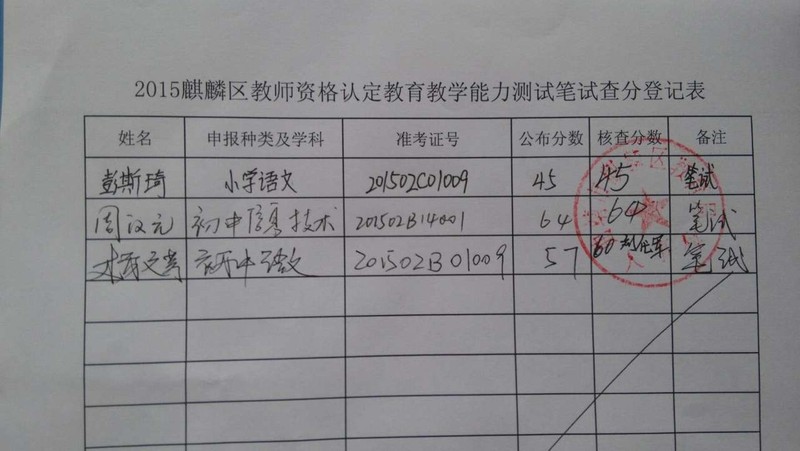 2015麒麟区教师资格认定教育教学能力测试笔试查分登记表
姓名 申报种类及学科 准考证号 公布分数 核查分数 备注
彭斯琦 小学语文 201502C01009 45 45 笔试
周汉元 初中信息技术 201502B14001 64 64 笔试
初中语文 201502B01009 57 60 笔试